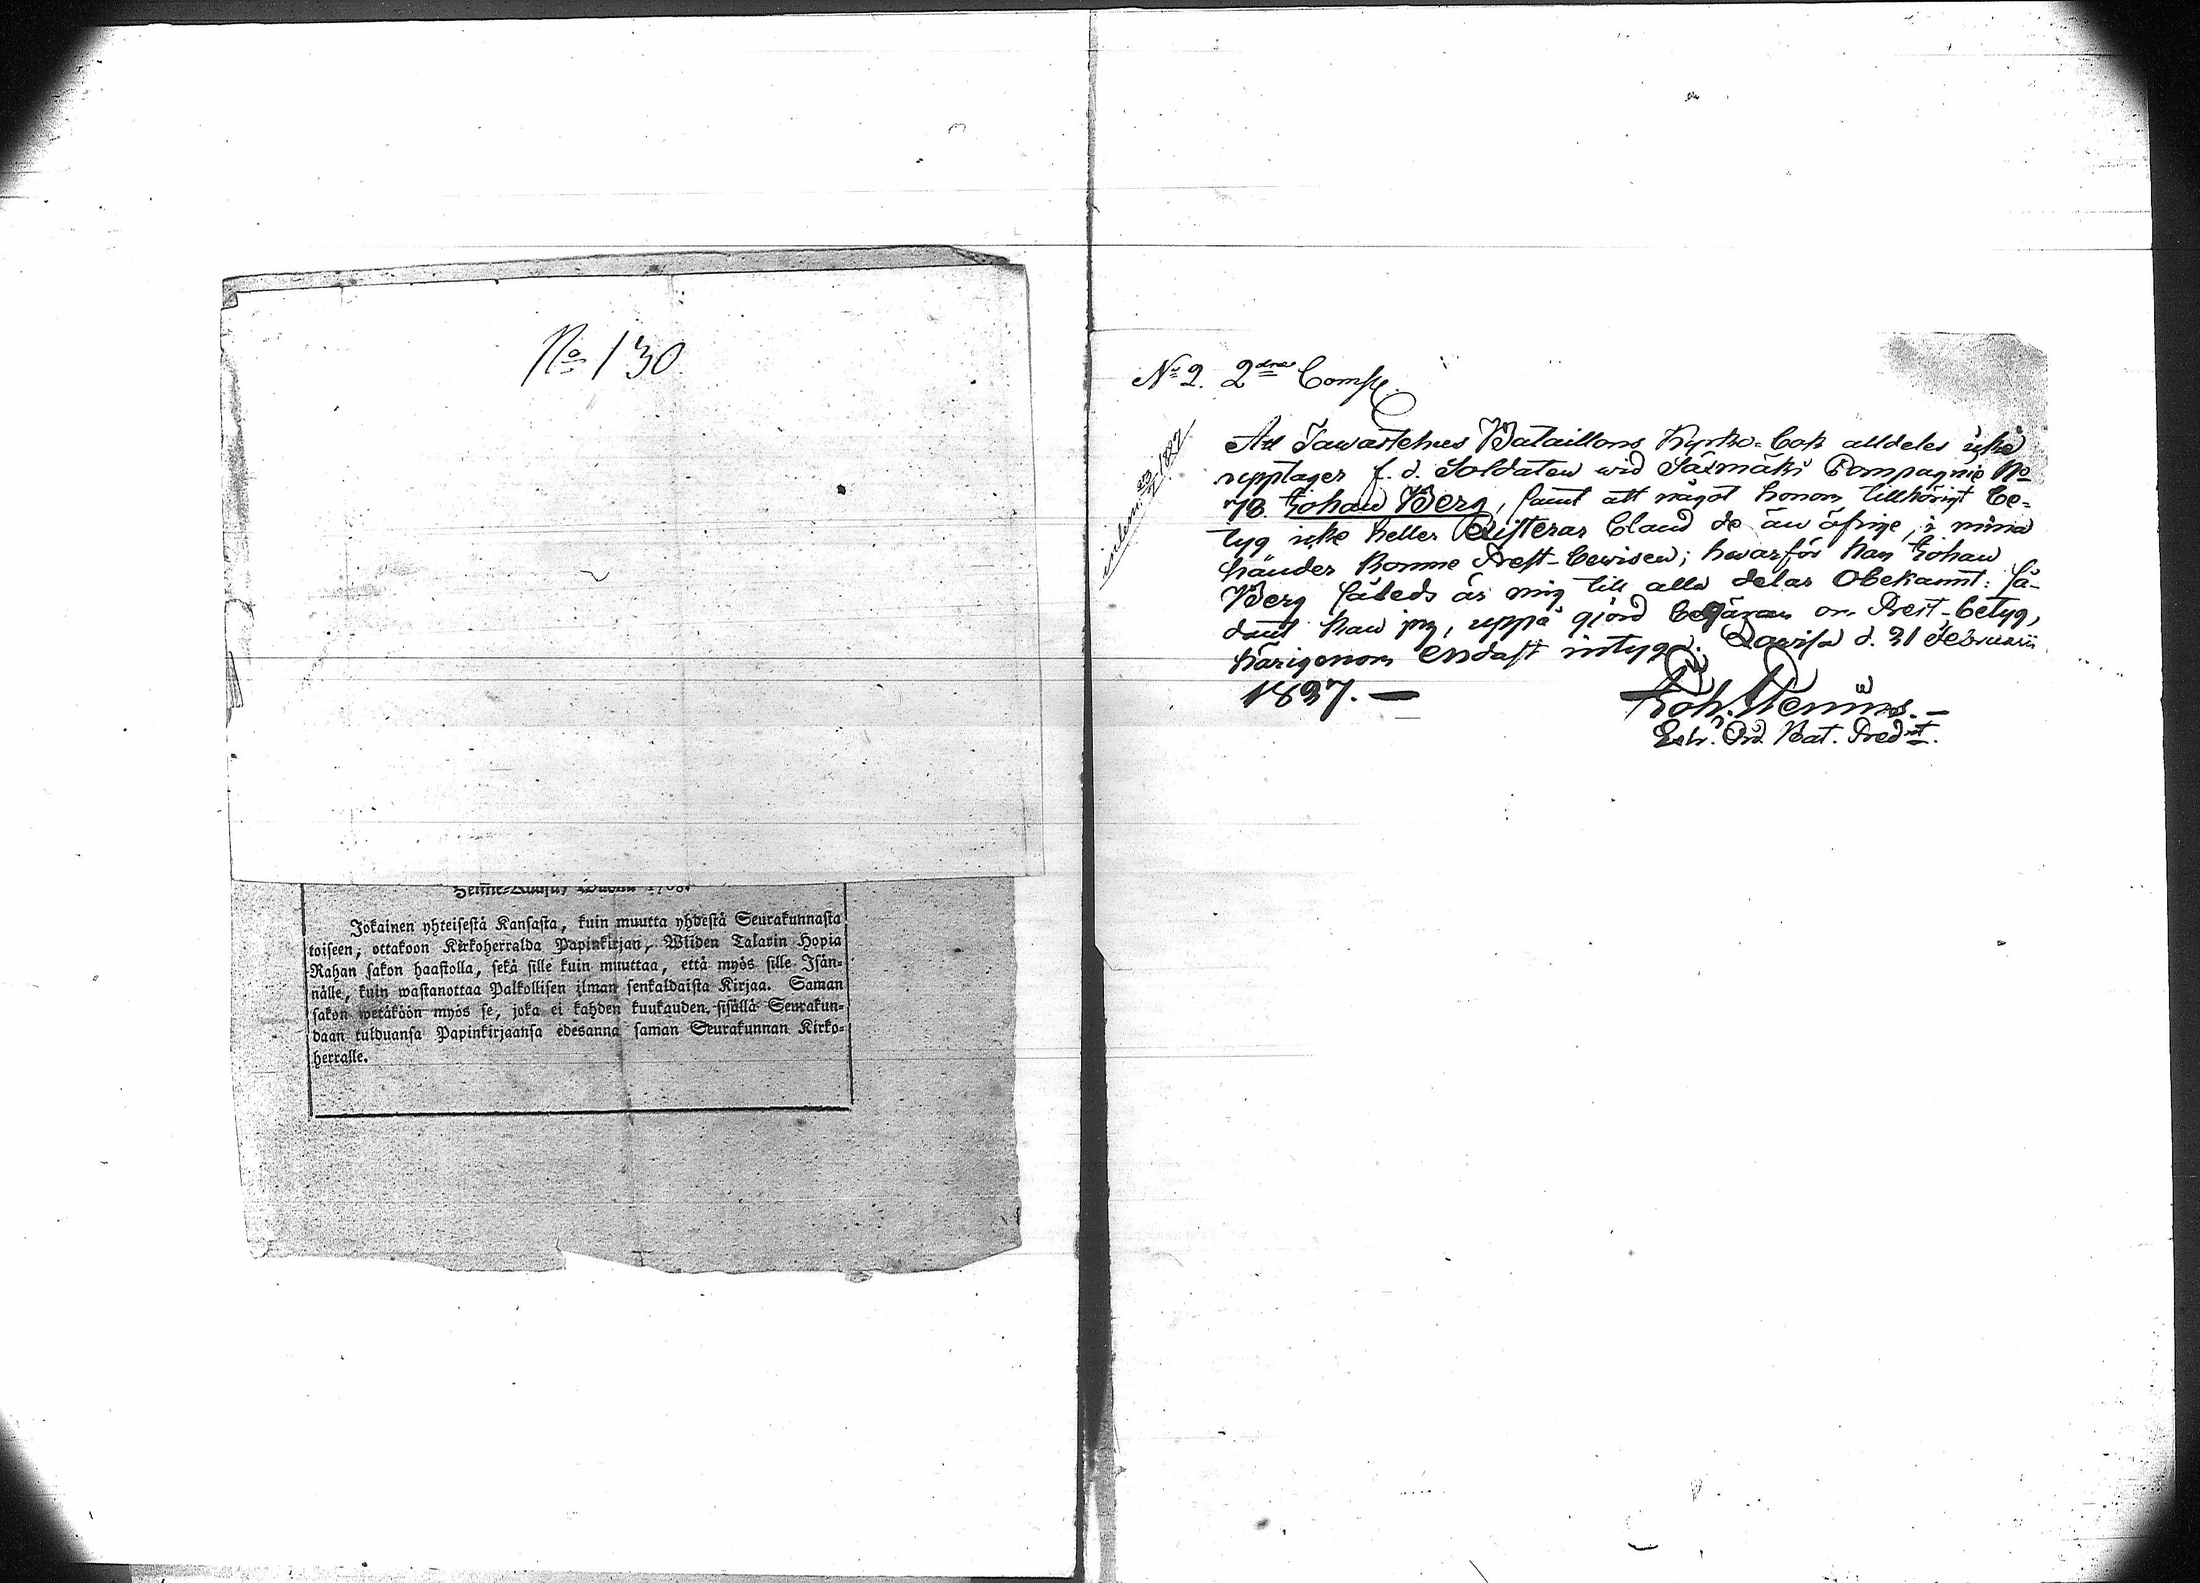 No 130
Jokainen yhteisestä Kansasta, kuin muutta yhdestä Seurakunnasta
toiseen, ottakoon Kirkoherralda Papinkirjan, Wiiden Talarin Hopia
Rahan sakon haastolla, sekä sille kuin muuttaa, että myös sille Isän-
nälle, kuin wastanottaa Palkollisen ilman senkaldaista Kirjaa. Saman
sakon wetäköön myös se, joka ei kahden kuukauden sisällä Seurakun-
daan tulduansa Papinkirjaansa edesanna saman Seurakunnan Kirko-
herralle.
No 2. 2dra Comp.
Att Tawastehus Bataillons Kyrko-bok alldeles icke
upptager f. d. Soldaten wid Jäsmäki Compagnie No
78 Johan Berg, samt att något honom tillhörigt be-
tyg icke heller Existerar bland de än öfrige, i mina
händer komne Prest-bewisen; hwarför han Johan
Berg således är mig till alla delar Obekannt: så-
dant kan jag, uppå gjord begäran om Prest-betyg,
härigenom endast intyga. Lowisa d. 21 Februarii
1827. —
Joh.
Extr. Ord. Bat. Pred.